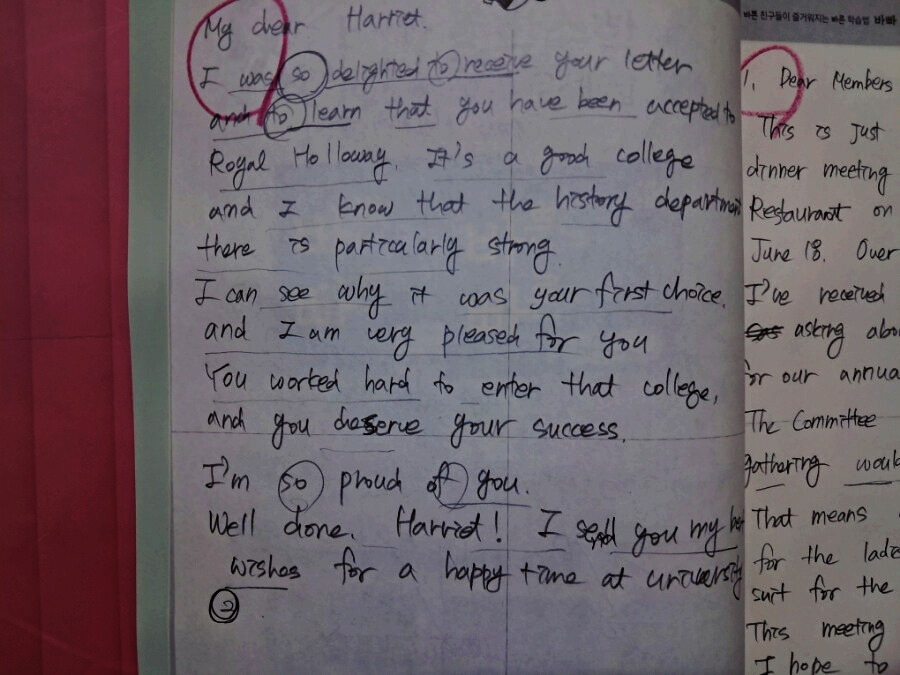 My dear Harriet.
I was so delighted to receive your letter
and to learn that you have been accepted to
Royal Holloway. It's a good college
and I know that the history department
there is particularly strong.
I can see why it was your first choice,
and I am very pleased for you
You worked hard to enter that college,
and you deserve your success.
I'm so proud of you.
Well done. Harriet! I send you my
wishes for a happy time at university
②
바른 친구들이 즐거워지는 바른 학습법 바빠
1. Dear Members
This is just
dinner meeting
Restaurant on
June 18. Over
I've received
asking abo
for our annua
The Committee
gathering woul
That means
for the ladie
suit for the
This meeting
I hope to